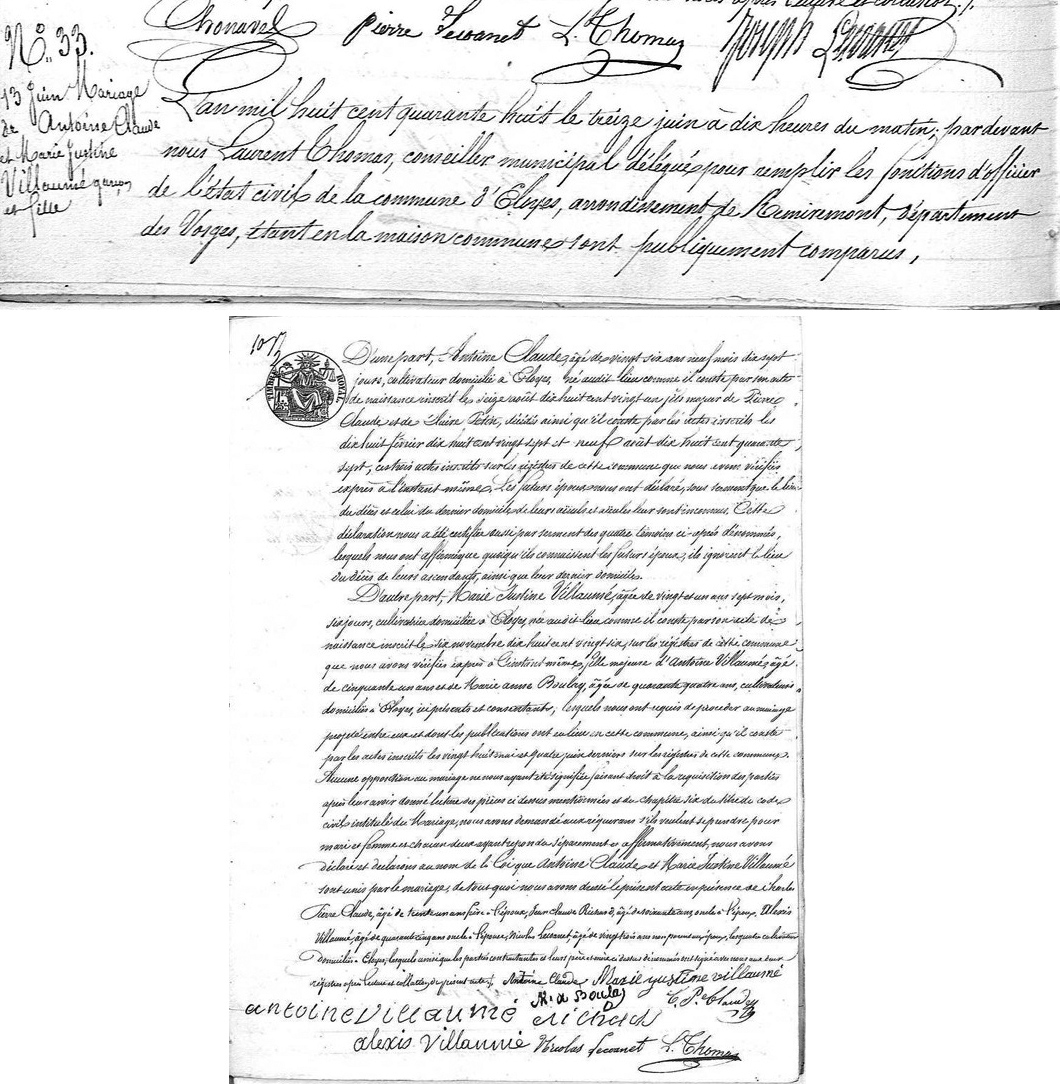 Chonavel Pierre Lecoanet L. Thomas Joseph
N°. 33.
13 Juin Mariage
de Antoine Claude
et Marie Justine
Villaumé garçon
et fille
L'an mil huit cent quarante huit le treize juin à dix heures du matin; pardevant
nous Laurent Thomas, conseiller municipal délégué pour remplir les fontions d'officier
de l'état civil de la commune d'Eloyes, arrondissement de Remiremont, département
des Vosges, étant en la maison commune sont publiquement comparus,
TIMBRE ROYAL
D'une part, Antoine Claude, âgé de vingt six ans neuf mois dix sept
jours, cultivateur domicilié à Eloyes, né audit lieu comme il conste par son acte
de naissance inscrit le seize août dix huit cent vingt un fils majeur de Pierre
Claude et de Claire Petin, décédés ainsi qu'il conste par les actes inscrits les
dix huit février dix huit cent vingt sept et neuf août dix huit cent quarante
sept, ces trois actes inscrits sur les régistres de cette commune que nous avons vérifiés
exprès à l'instant même. Les futurs époux nous ont déclaré, sous serment que le lieu
du décès et celui du dernier domicile de leurs aïeuls et aïeules leur sont inconnus. Cette
déclaration nous a été certifiée aussi par serment des quatre témoins ci-après dénommés,
lesquels nous ont affirmé que quoiqu'ils connaissent les futurs époux, ils ignorent le lieu
du décès de leurs ascendants, ainsi que leur dernier domicile.
D'autre part, Marie Justine Villaumé, âgée de vingt et un ans sept mois,
six jours, cultivatrice domiciliée à Eloyes, née audit lieu comme il conste par son acte de
naissance inscrit le six novembre dix huit cent vingt six, sur les régistres de cette commune
que nous avons vérifiés exprès à l'instant même, fille majeure d'Antoine Villaumé âgé
de cinquante un ans et de Marie anne Boulay, âgée de quarante quatre ans, cultivateurs
domiciliés à Eloyes, ici présents et consentants; lesquels nous ont requis de procéder au mariage
projeté entre eux et dont les publications ont eu lieu en cette commune, ainsi qu'il conste
par les actes inscrits les vingt huit mai et quatre juin derniers sur les régistres de cette commune.
Aucune opposition au mariage ne nous ayant été signifiée faisant droit à la réquisition des parties
après leur avoir donné lecture des pièces ci dessus mentionnées et du chapitre six du titre du code
civil intitulé du Mariage, nous avons demandé aux réquérans s'ils veulent se prendre pour
mari et femme et chacun d'eux ayant répondu séparément et affirmativement, nous avons
déclaré et déclarons au nom de la Loi que Antoine Claude et Marie Justine Villaumé
sont unis par le mariage; de tout quoi nous avons dressé le présent acte en présence de Charles
Pierre Claude, âgé de trente un ans frère à l'époux, Jean Claude Richard, âgé de soixante ans oncle à l'époux, Alexis
Villaumé, âgé de quarante cinq ans oncle à l'épouse, Nicolas Lecoanet, âgé de vingt trois ans non parent aux époux, lesquels cultivateurs
domiciliés à Eloyes, lesquels ainsi que les parties contractantes et leurs père et mère ci dessus dénommés ont signé avec nous aux deux
régistres après lecture et collation du présent acte. Antoine Claude Marie justine villaumé
M. a Boulay C. P. Claude
antoine villaumé richard
alexis villaumé Nicolas Lecoanet L. Thomas